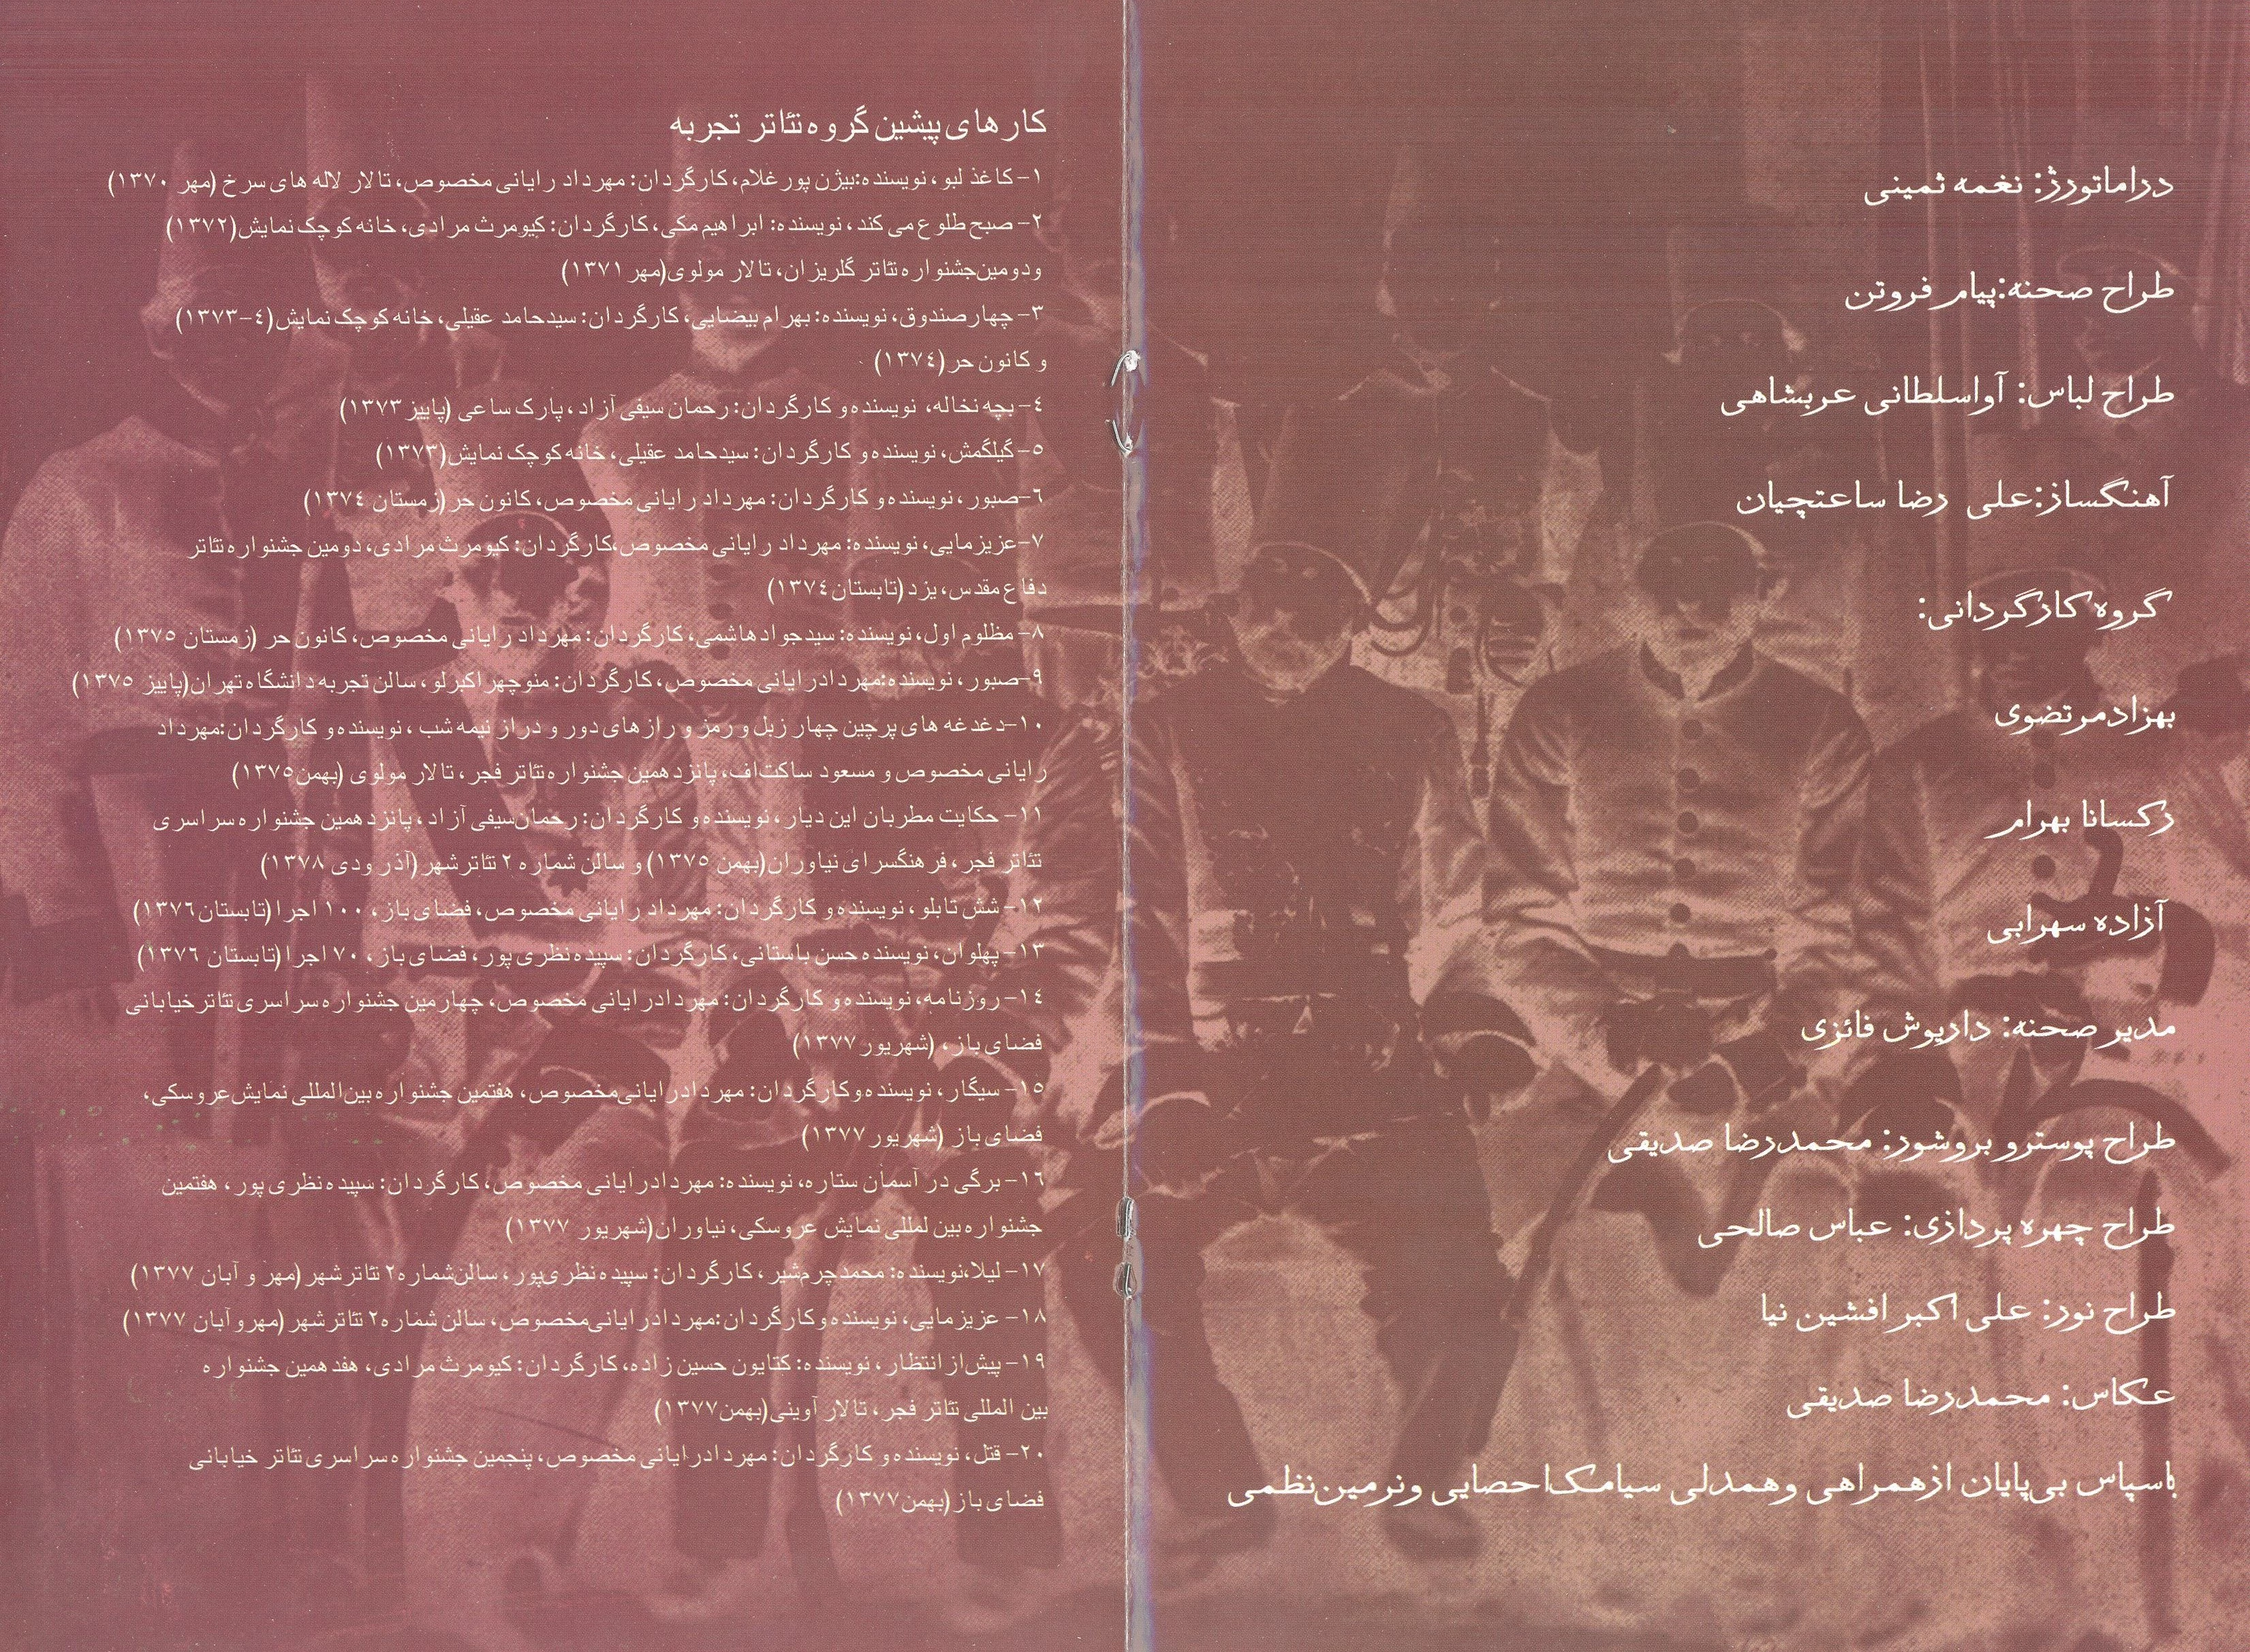 دراماتورژ: نغمه ثمینی
طراح صحنه:پیام فروتن
طراح لباس: آواسلطانی عربشاهی
آهنگساز:علی رضا ساعتچیان
گروه کارگردانی:
بهزادمرتضوی
رکسانا بهرام
آزاده سهرابی
مدیر صحنه: داریوش فائزی
طراح پوسترو بروشور: محمدرضا صدیقی
طراح چهره پردازی: عباس صالحی
طراح نور: علی اکبر افشین نیا
عکاس: محمدرضا صدیقی
باسپاس بی‌پایان ازهمراهی وهمدلی سیامک‌احصایی ونرمین‌نظمی
کارهای پیشین گروه تئاتر تجربه
۱- کاغذ لبو، نویسنده:بیژن پورغلام، کارگردان: مهرداد رایانی مخصوص، تالار لاله های سرخ (مهر ۱۳۷۰)
۲- صبح طلوع می کند، نویسنده: ابراهیم مکی، کارگردان: کیومرث مرادی، خانه کوچک نمایش(۱۳۷۲)
ودومین‌جشنواره تئاتر گلریزان، تالار مولوی(مهر ۱۳۷۱)
۳- چهارصندوق، نویسنده: بهرام بیضایی، کارگردان: سیدحامد عقیلی، خانه کوچک نمایش(۴-۱۳۷۳)
و کانون حر (۱۳۷۴)
۴- بچه نخاله، نویسنده و کارگردان: رحمان سیفی آزاد، پارک ساعی (پاییز ۱۳۷۳)
۵- گیلگمش، نویسنده و کارگردان: سیدحامد عقیلی، خانه کوچک نمایش(۱۳۷۳)
۶-صبور، نویسنده و کارگردان: مهرداد رایانی مخصوص، کانون حر(زمستان ۱۳۷۴)
۷-عزیزمایی، نویسنده: مهرداد رایانی مخصوص،کارگردان: کیومرث مرادی، دومین جشنواره تئاتر
دفاع مقدس، یزد (تابستان ۱۳۷۴)
۸- مظلوم اول، نویسنده: سیدجوادهاشمی، کارگردان: مهرداد رایانی مخصوص، کانون حر (زمستان ۱۳۷۵)
۹-صبور، نویسنده:مهردادرایانی مخصوص، کارگردان: منوچهراکبرلو، سالن تجربه دانشگاه تهران(پاییز ۱۳۷۵)
۱۰-دغدغه های پرچین چهار زبل و رمز و رازهای دور و دراز نیمه شب ، نویسنده و کارگردان:مهرداد
رایانی مخصوص و مسعود ساکت‌اف، پانزدهمین جشنواره تئاتر فجر، تالار مولوی (بهمن۱۳۷۵)
۱۱- حکایت مطربان این دیار، نویسنده و کارگردان: رحمان‌سیفی آزاد، پانزدهمین جشنواره سراسری
تئاتر فجر، فرهنگسرای نیاوران(بهمن ۱۳۷۵) و سالن شماره ۲ تئاترشهر(آذر ودی ۱۳۷۸)
۱۲- شش تابلو، نویسنده و کارگردان: مهرداد رایانی مخصوص، فضای باز، ۱۰۰ اجرا (تابستان۱۳۷۶)
۱۳- پهلوان، نویسنده حسن باستانی، کارگردان: سپیده نظری پور، فضای باز، ۷۰ اجرا(تابستان ۱۳۷۶)
۱۴- روزنامه، نویسنده و کارگردان: مهردادرایانی مخصوص، چهارمین جشنواره سراسری تئاترخیابانی
فضای باز، (شهریور ۱۳۷۷)
۱۵- سیگار، نویسنده‌وکارگردان: مهردادرایانی‌مخصوص، هفتمین جشنواره بین‌المللی نمایش‌عروسکی،
فضای باز (شهریور ۱۳۷۷)
۱۶- برگی در آسمان ستاره، نویسنده: مهردادرایانی مخصوص، کارگردان: سپیده نظری پور، هفتمین
جشنواره بین لمللی نمایش عروسکی، نیاوران(شهریور ۱۳۷۷)
۱۷- لیلا،نویسنده: محمدچرم‌شیر، کارگردان: سپیده نظری‌پور، سالن‌شماره۲ تئاترشهر (مهر و آبان ۱۳۷۷)
۱۸- عزیزمایی، نویسنده وکارگردان:مهردادرایانی‌مخصوص، سالن شماره۲ تئاترشهر (مهروآبان ۱۳۷۷)
۱۹- پیش‌از انتظار، نویسنده: کتایون حسین زاده، کارگردان: کیومرث مرادی، هفدهمین جشنواره
بین المللی تئاتر فجر، تالار آوینی(بهمن۱۳۷۷)
۲۰- قتل، نویسنده و کارگردان: مهردادرایانی مخصوص، پنجمین جشنواره سراسری تئاتر خیابانی
فضای باز(بهمن۱۳۷۷)